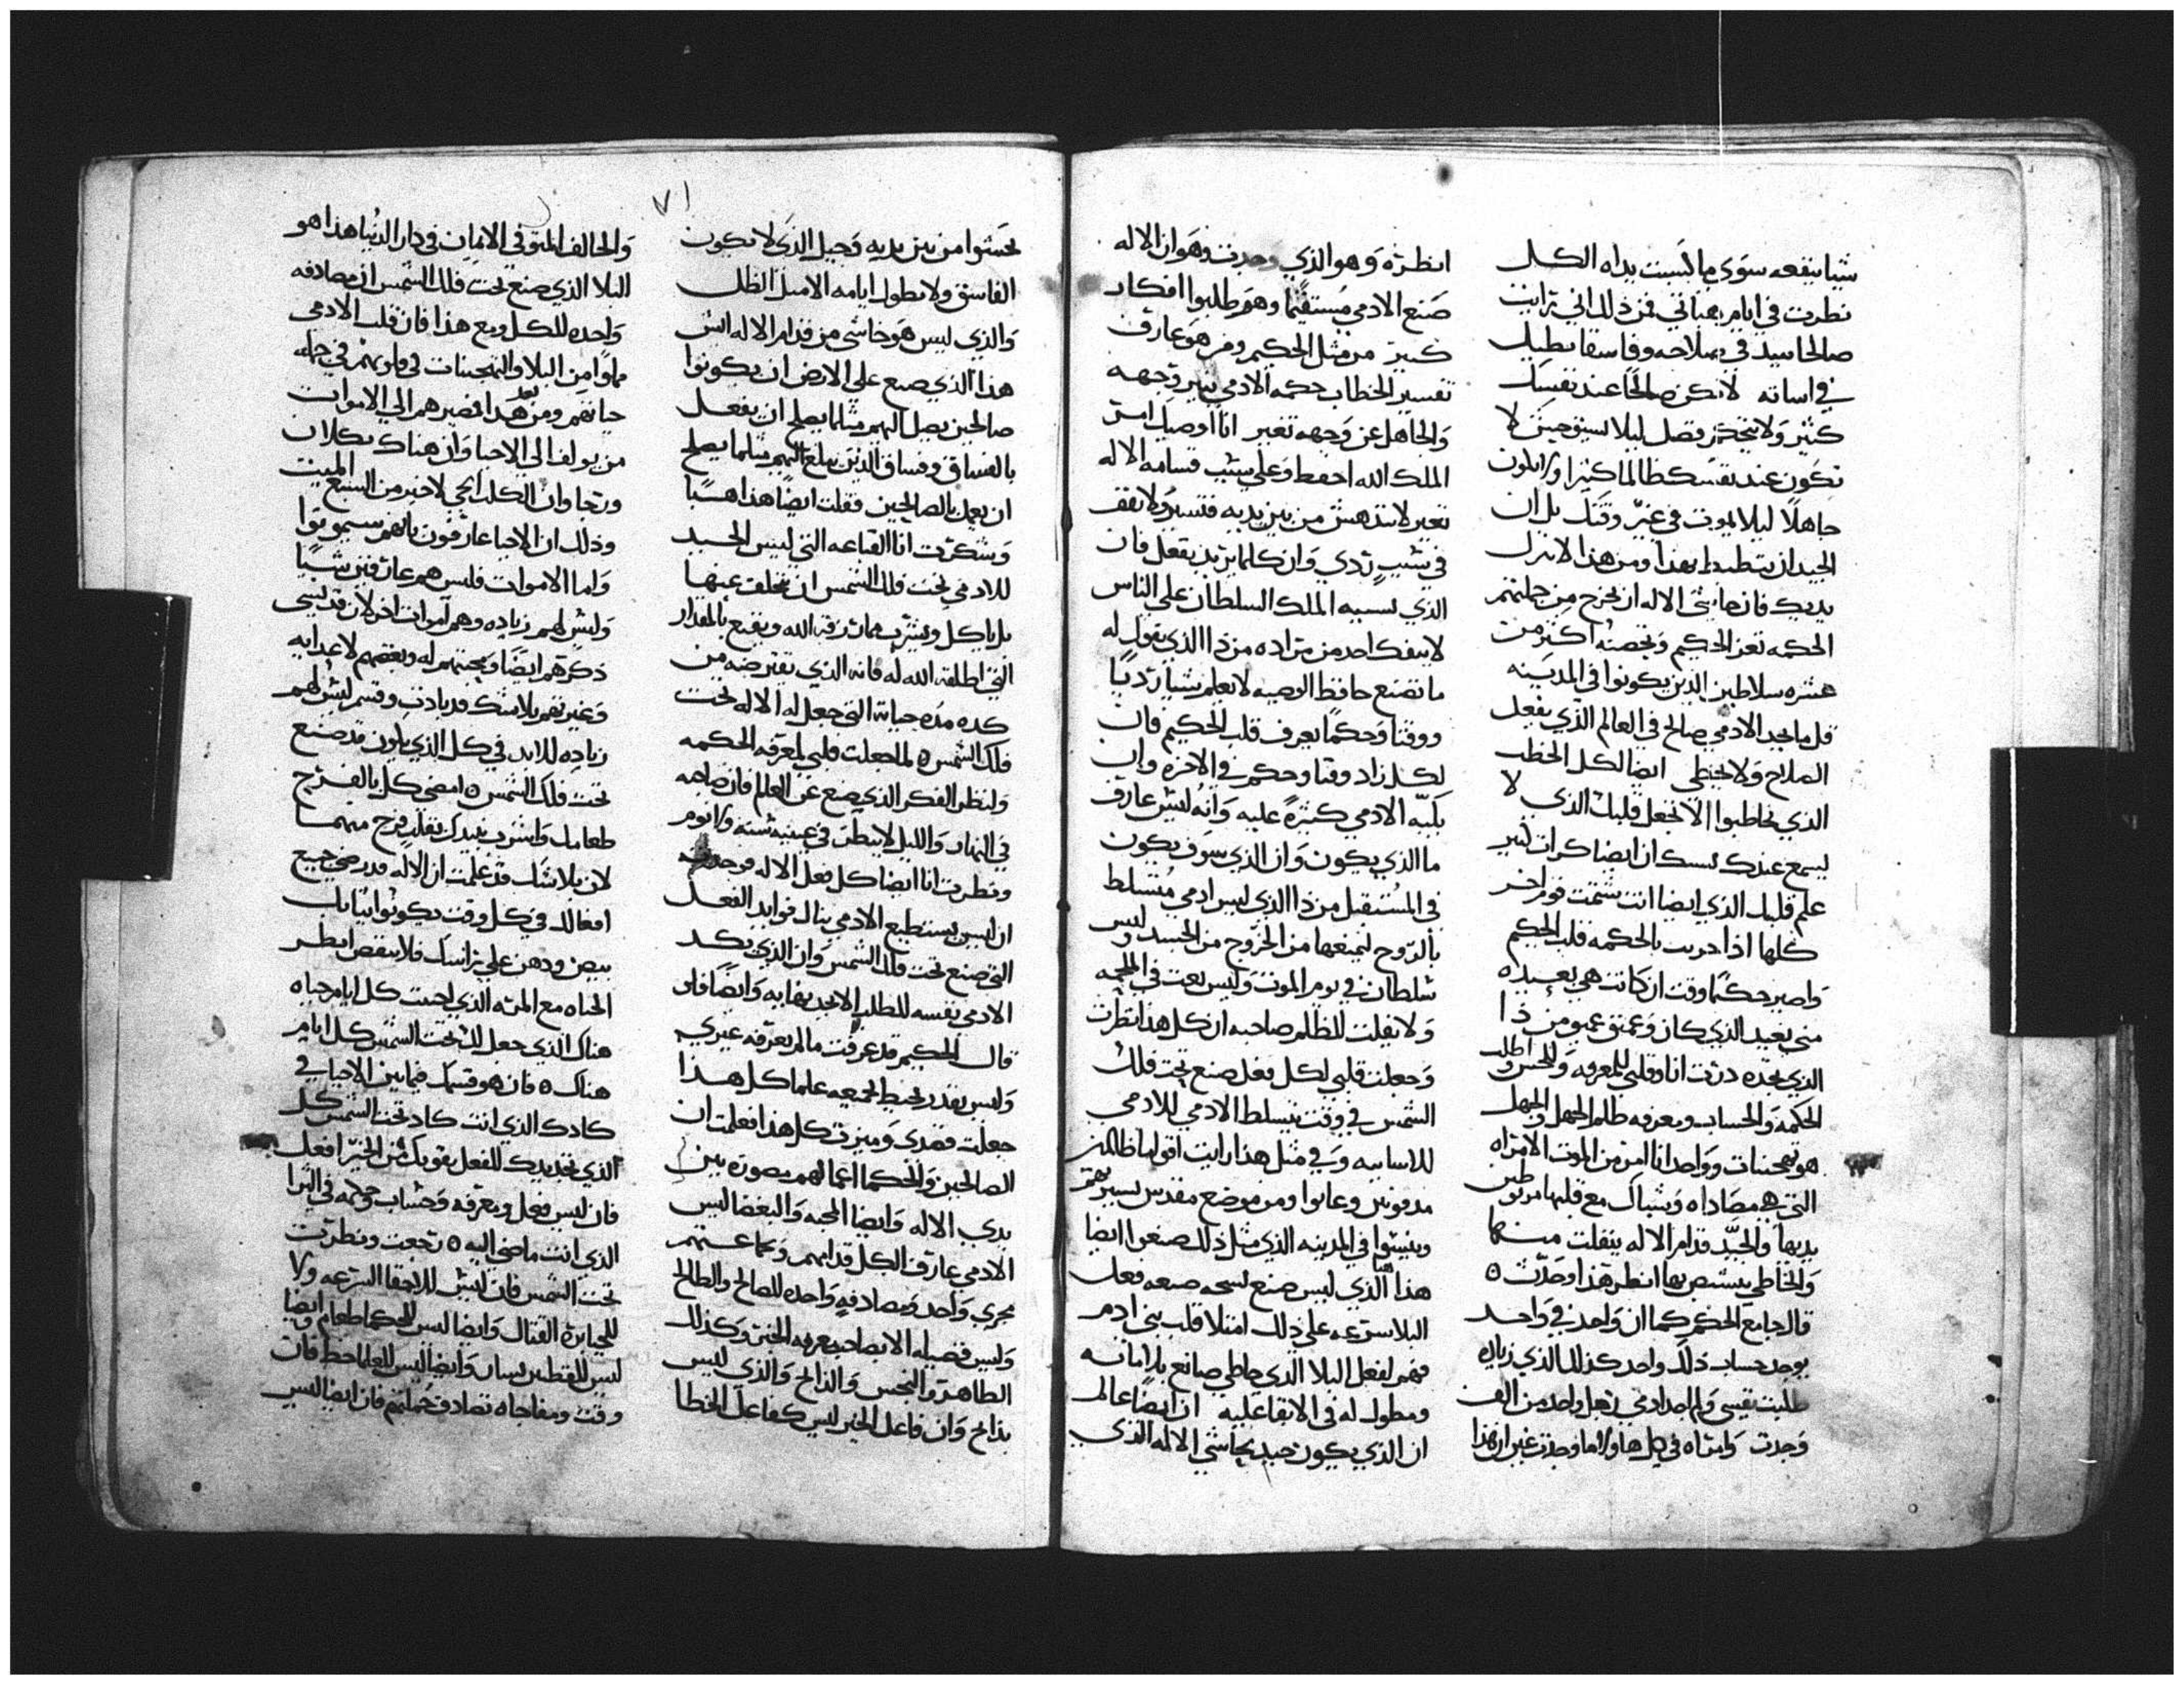 شيا ينفعه سوى ما كسبت يداه الكل
نظرت في ايام بهتاني فمن ذلك اني رايت
صالحا يبيد في صلاحه وفاسقا يطيل
في اساته لا تكن صالحًا عند نفسك
كثير ولا تتحذر فضل ليلا حينئذ لا
تكون عند نفسك ظالما كثيرا ولا تكون
جاهلًا ليلا يموت في غير وقتك بل ان
الجيد ان بهذا ومن هذا لا تزل
يديك فان خاشى الاله ان يخرج من جملتهم
الحكمه تعز الحكيم وتحصنه اكثر من
عشره سلاطين الذين يكونوا في المدينه
قل ما تجد الادمي صالح في العالم الذي يفعل
الصلاح ولا يخطي ايضا لكل الخطب
الذي يخاطبوا الا تجعل قلبك الذي لا
يسمع عبدك يسبك ان ايضا كرات كثير
علم قلبك الذي ايضا انت شتمت قوم اخر
كلها اذا جربت بالحكمه قلب الحكيم
واصير حكيمًا وقت ان كانت هي بعيده
مني بعيد الذي كان وعمق عميق من ذا
الذي يجده درت انا وقلبي للمعرفه وللجس ولطلب
الحكمه والحساب ومعرفه ظلم الجهل والجهل
هو تهجنات وواجد انا امر من الموت الامراه
التي هي مصاداه وشباك مع قلبها مربوطين
يديها والجيد قدام الاله ينفلت منها
والخاطي يستنص بها انظر هذا وجدت ه
قال جامع الحكم كما ان واحد في واحد
يوجد حساب ذلك واحد كذلك الذي زياده
طلبت نفسي ولم اجد ادمي رجل واحد من الف
وجدت وامراه في كل هاولا ما وجدت غير ان هذا
انظره وهو الذي وجدت وهو ان الاله
صنع الادمي مستقيما وهم طلبوا افكار
كثير من مثل الحكيم ومن هو عارف
تفسير الخطاب حكمه الادمي تنير وجهه
والجاهل عن وجهه تغير انا اوصيك امر
الملك الله احفظ وعلى سبب قسامه الاله
تغير لا تندهش من بين يديه فتسير ولا تقف
في شيء ردي وان كلما يريد يفعل فان
الذي لسبيه الملك السلطان على الناس
لا ينفك احد من مراده من ذا الذي يقول له
ما تصنع حافظ الوصيه لا يعلم شيا رديا
ووقتا وحكما يعرف قلب الحكيم فان
لكل زاد وقتا وحكم في الاخره وان
بكيه الادمي كثيرة عليه وانه ليس عارف
ما الذي يكون وان الذي سوف يكون
في المستقبل من ذا الذي ليس ادمي متسلط
بالروح ليمنعها من الخروج من الجسد وليس
سلطان في يوم الموت وليس بعت في الملحمه
ولا يفلت للظلم صاحبه ان كل هذا نظرت
وجعلت قلبي لكل فعل صنع تحت فلك
الشمس في وقت تسلط الادمي للادمي
للاسايه وفي مثل هذا رايت اقواما ظالمين
مدفونين وعابوا ومن موضع مقدس
وينسوا في المدينه الذي مثل ذلك صنعوا ايضا
هذا هبا الذي ليس صنع صنعه فعل
البلا سرعه على ذلك امتلا قلب بني ادم
فهم لفعل البلا الذي خاطي صانع بلا امانه
ومطول له في الابقا عليه ان ايضا عالم
ان الذي يكون جيد يخاشي الاله الذي
يخشوا من بين يديه وجيل الذي لا يكون
الفاسق ولا يطول ايامه الا مثل الظل
والذي ليس هو خاشي من قدام الاله ايش
هذا الذي صنع على الارض ان يكونوا
صالحين يصل اليهم مثلما يصلح ان يفعل
بالفساق وفساق الذين يبلغ اليهم مثلما يصلح
ان يعمل بالصالحين فقلت ايضًا هذا هسبًا
وشكرت انا القناعه التي ليس الجيد
للادمي تحت فلك الشمس ان يتخلف عنها
بل ياكل ويشرب مما رزقه الله ويقنع بالمقدار
التي اطلقه الله له فانه الذي يقترضه من
كده مده حياته التي جعل له الاله تحت
فلك الشمس ه لما جعلت قلبي لمعرفه الحكمه
ولنظر الفكر الذي صنع عن العلم فان صاحبه
في النهار والليل لا ينظر في عينيه سنه ولا نوم
ونظرت انا ايضا كل فعل الاله فوجدت
ان ليس يستطيع الادمي ينال فوايد الفعل
التي صنع تحت فلك الشمس وان الذي يكد
الادمي نفسه للطلب لا يجد نهايه وايضًا فلو
قال الحكيم قد عرفت ما لم يعرفه غيري
وليس يقدر يحيط بجميعه علما كل هذا
جعلت قصدي وميزت كل هذا فعلمت ان
الصالحين والحكما اعمالهم مصوره بين
يدي الاله وايضا المحبه والبغضا ليس
الادمي عارف الكل قدامهم وعما عنهم
مجرى واحد ومصادفه واحده للصالح والطالح
وليس فضيله الا بصاحب معرفه الخير وكذلك
الطاهر والنجس والذابح والذي ليس
بذابح وان فاعل الخير ليس كفاعل الخطا
والحالف المتوقي الايمان في دار الدنيا هذا هو
البلا الذي صنع تحت فلك الشمس ان مصادفه
واحده للكل ومع هذا فان قلب الادمي
مملوا من البلا والتهجنات في قلوبهم في جمله
حياتهم ومن بعد هذا فصيرهم الى الاموات
من يولف الى الاحيا وان هناك تكلان
ورجا وان الكلب الحي لاخير من السبع الميت
وذلك ان الاحيا عارفون بانهم سيموتوا
واما الاموات فليس هم عارفين شيًا
وليس لهم زياده وهم اموات اخر لان قد نسى
ذكرهم ايضًا ومحبتهم له وبغضهم لاعدايه
وغيرتهم بلا شك قد بادت وقسم ليس لهم
زياده للابد في كل الذي يكون قد صنع
تحت فلك الشمس ه امضي كل بالفرح
طعامك واشرب نبيدك بقلب فرح مهما
لان بلا شك قد علمت ان الاله قد رضي جميع
افعالك في كل وقت يكونوا ثيابك
بيض ودهن على راسك فلا ينقص انظر
الحياه مع المره الذي احببت كل ايام حياه
هناك الذي جعل لك تحت الشمس كل ايام
هناك ه فان هو قسمك فيما بين الاحيا في
كادك الذي انت كاد تحت الشمس كل
الذي تجد يدك للفعل بقوتك من الخير افعل
فان ليس فعل ومعرفه وحساب وحكمه في الثرا
الذي انت ماضي اليه ه رجعت ونظرت
تحت الشمس فان ليس للاحقا السرعه ولا
للجبابرة القتال وايضا ليس للحكما طعام وايضا
ليس للفطين يسار وايضا ليس للعلما حظ فان
وقت ومفاجاه تصادف جملتهم فان ايضا ليس
٧١